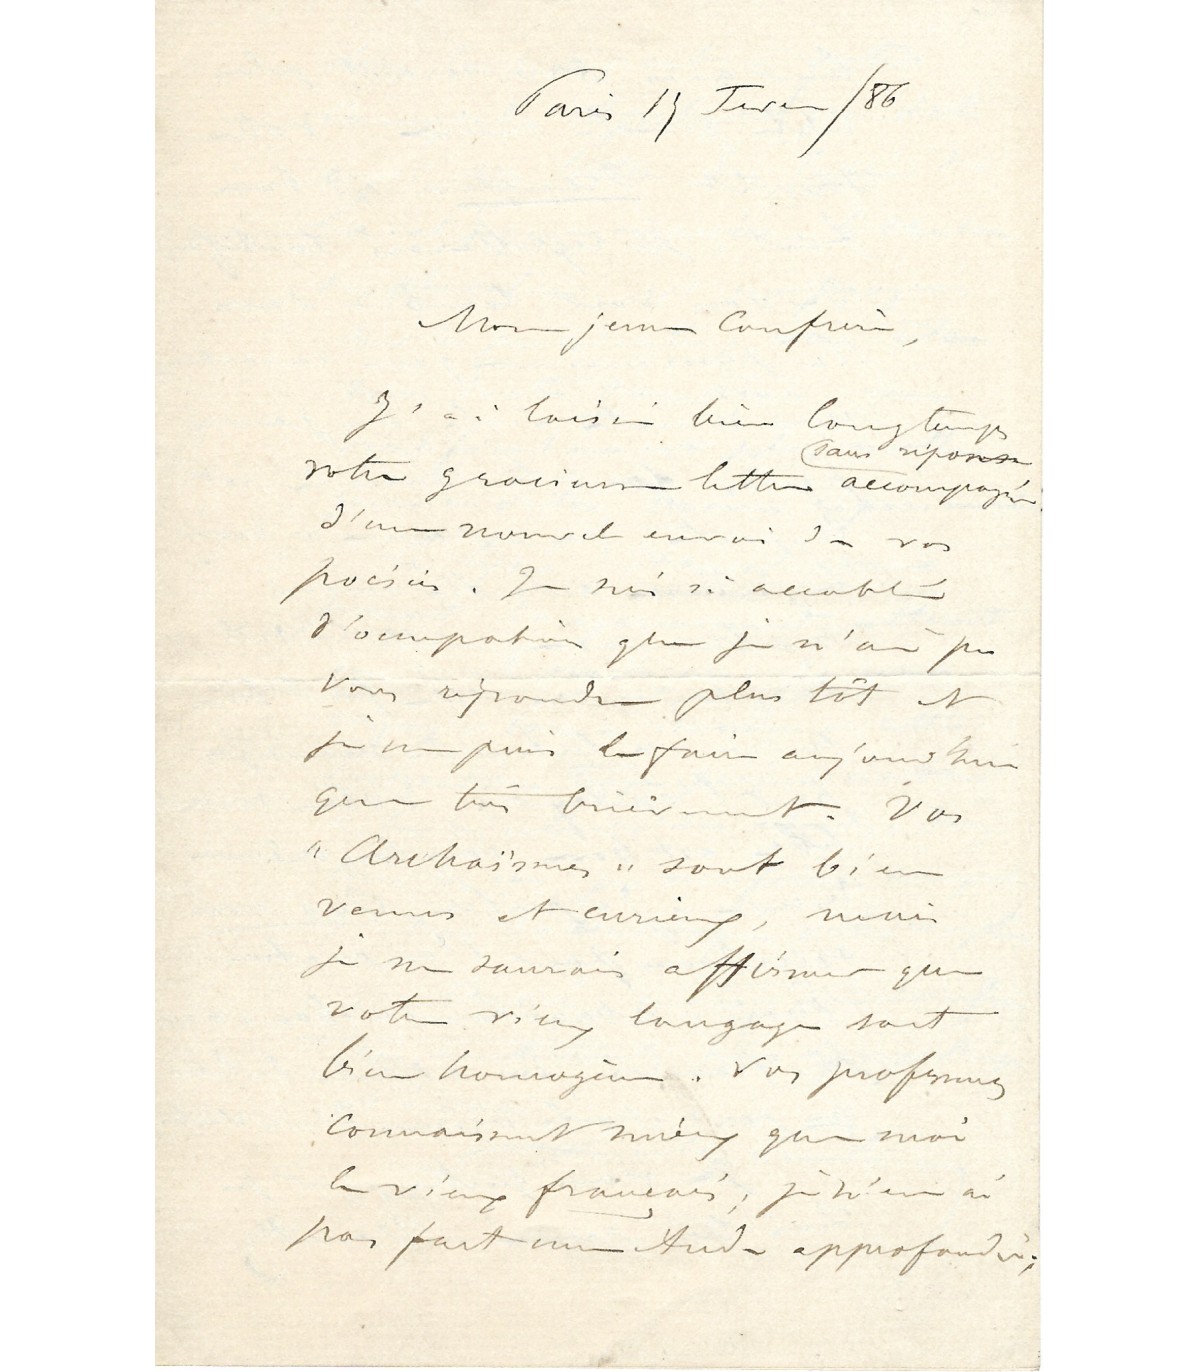 Paris 15 Fevr /86
Mon jeune Confrère,
J'ai laissé bien longtemps
sans réponse
votre gracieuse lettre accompagnée
d'un nouvel envoi de vos
poésies. Je suis si accablé
d'occupations que je n'ai pu
vous répondre plus tôt et
je ne puis le faire aujourd'hui
que très brièvement. Vos
"Archaïsmes" sont bien
venus et curieux, mais
je ne saurais affirmer que
votre vieux langage soit
bien homogène. Vos professeurs
connaissent mieux que moi
le vieux français, je n'en ai
pas fait une étude approfondie;